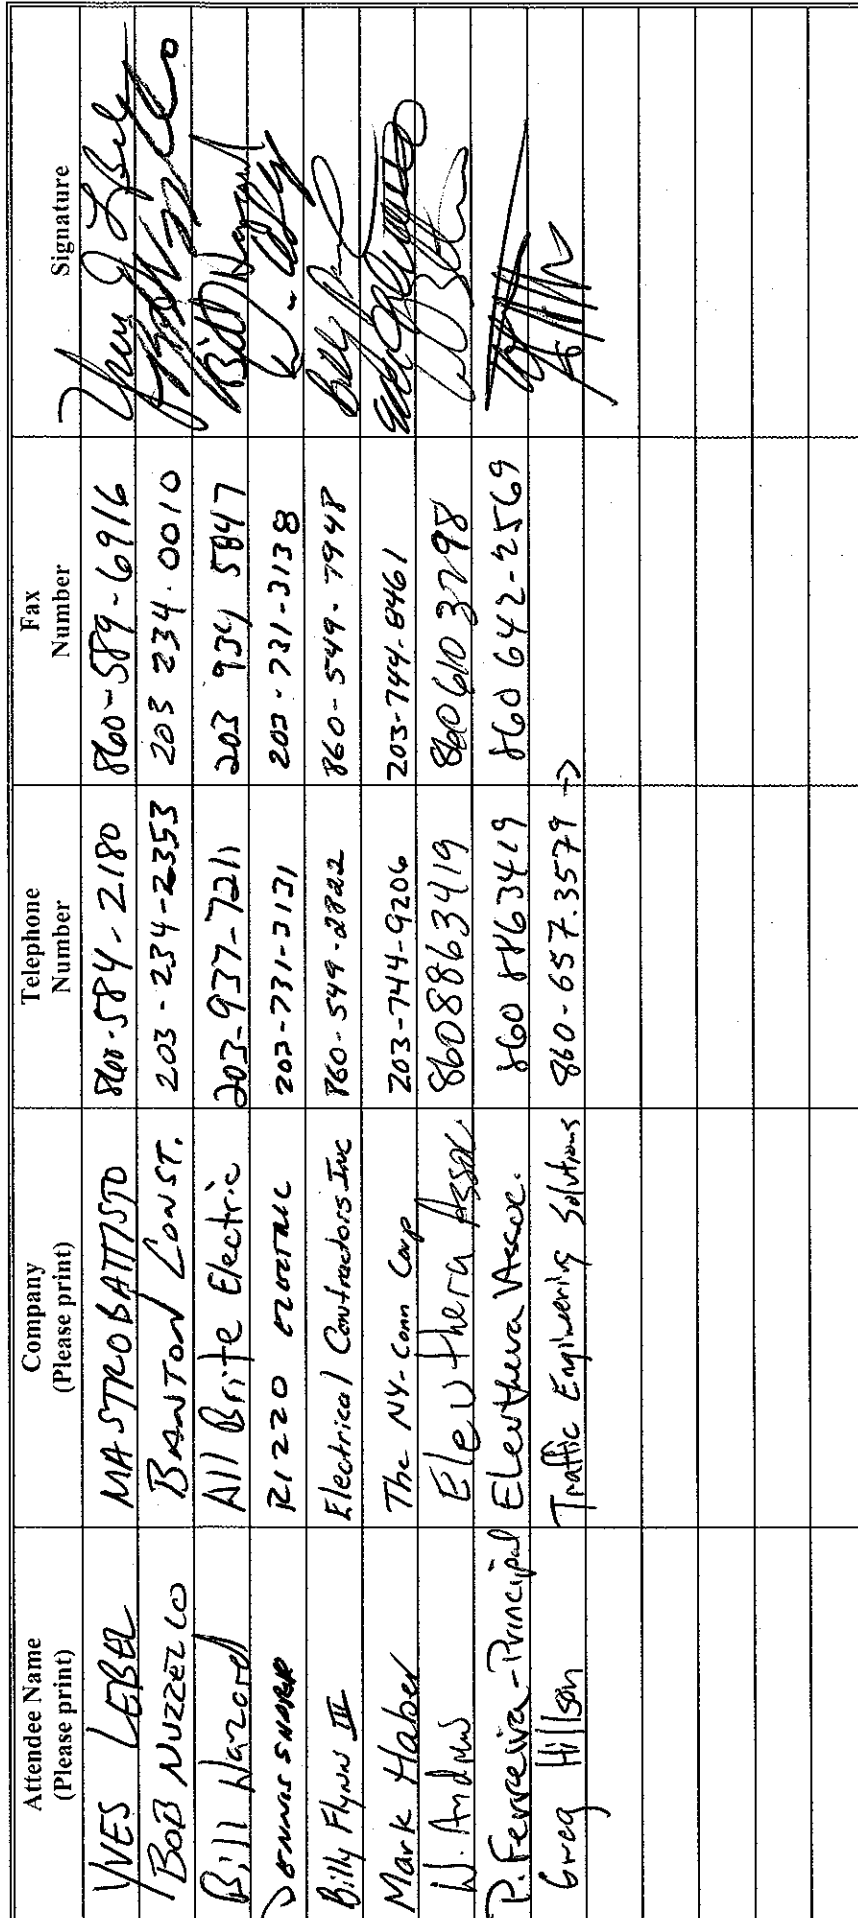 Attendee Name (Please print) Company (Please print) Telephone Number Fax Number Signature
YVES LEBEL MASTROBATTISTO 860-584-2180 860-589-6916
BOB NUZZELLO BANTON CONST. 203-234-2353 203 234.0010
Bill Hazard All Brite Electric 203-937-7211 203 934 5847
DENNIS RIZZO ELECTRIC 203-731-3131 203-731-3138
Billy Flynn III Electrical Contractors Inc 860-549-2822 860-549-7948
Mark Haber The NY-Conn Corp 203-744-9206 203-744-8461
W. Andrews Eleuthera Assoc. 8608863419 860 610 3798
P. Ferreira-Principal Eleuthera Assoc. 860 8863419 860 642-2569
Greg Hillson Traffic Engineering Solutions 860-657.3579 →